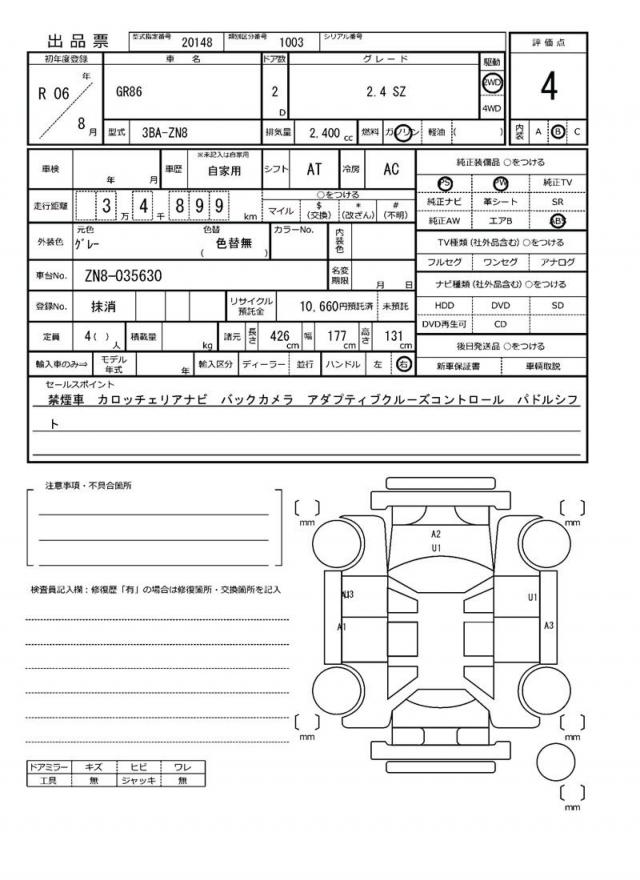 出品票 型式指定番号 20148 類別区分番号 1003 シリアル番号
評価点
4
内装 A B C
初年度登録 車名 ドア数 グレード 駆動
R 06 年 8 月 GR86 2 D 2.4 SZ 2WD 4WD
型式 3BA-ZN8 排気量 2,400 cc 燃料 ガソリン 軽油 ( )
車検 年 月 車歴 ※未記入は自家用 自家用 シフト AT 冷房 AC
走行距離 3 万 4 千 8 9 9 km
○をつける
マイル $ (交換) * (改ざん) # (不明)
外装色 元色 グレー 色替 ( 色替無 ) カラーNo. 内装色
車台No. ZN8-035630 名変期限 月 日
登録No. 抹消 リサイクル預託金 10,660円預託済 未預託
定員 4( ) 人 積載量 kg 諸元 長さ 426 cm 幅 177 cm 高さ 131 cm
輸入車のみ⇒ モデル年式 年 輸入区分 ディーラー 並行 ハンドル 左 右
純正装備品 ○をつける
PS PW 純正TV
純正ナビ 革シート SR
純正AW エアB ABS
TV種類(社外品含む)○をつける
フルセグ ワンセグ アナログ
ナビ種類(社外品含む)○をつける
HDD DVD SD
DVD再生可 CD
後日発送品 ○をつける
新車保証書 車輌取説
セールスポイント
禁煙車 カロッチェリアナビ バックカメラ アダプティブクルーズコントロール パドルシフ
ト
注意事項・不具合箇所
検査員記入欄:修復歴「有」の場合は修復箇所・交換箇所を記入
ドアミラー キズ ヒビ ワレ
工具 無 ジャッキ 無
mm
mm
A2
U1
U1
A1
A3
mm
mm
mm